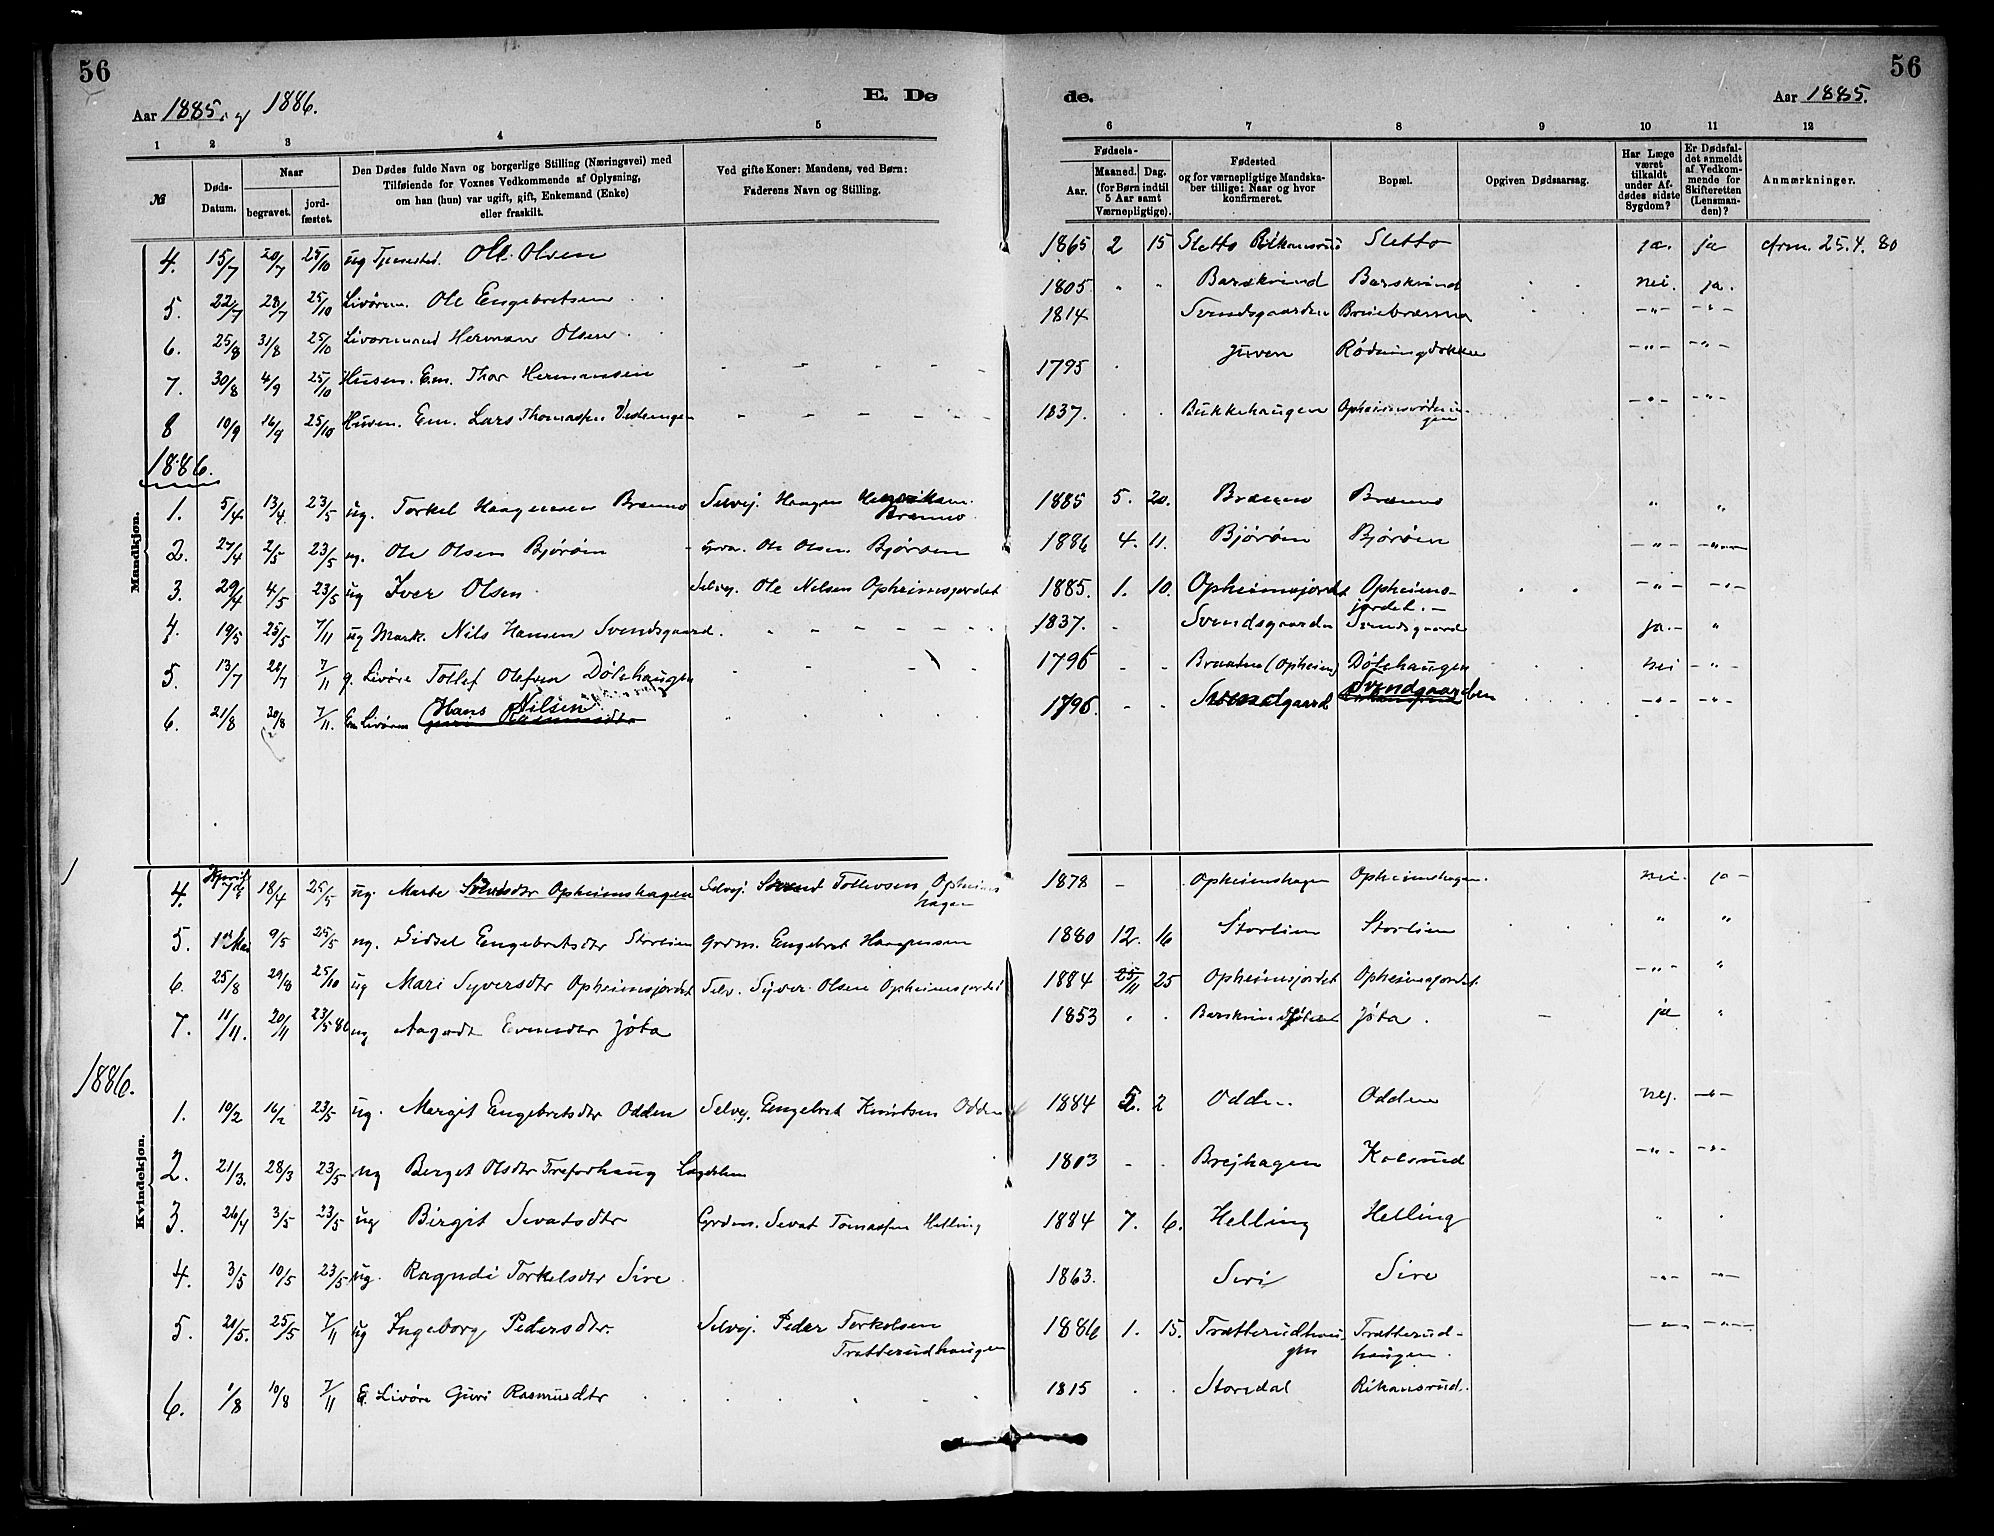 56
56
Aar 1885. og 1886.
E. Dø
de.
Aar 1885.
1 2 3 4 5 6 7 8 9 10 11 12
№
Døds-Datum.
Naar
begravet.
jord-fæstet.
Den Dødes fulde Navn og borgerlige Stilling (Næringsvei) med
Tilføiende for Voxnes Vedkommende af Oplysning,
om han (hun) var ugift, gift, Enkemand (Enke)
eller fraskilt.
Ved gifte Koner: Mandens, ved Børn:
Faderens Navn og Stilling.
Fødsels-
Aar.
Maaned. Dag.
(for Børn indtil
5 Aar samt
Værnepligtige).
Fødested
og for værnepligtige Mandska-
ber tillige: Naar og hvor
konfirmeret.
Bopæl.
Opgiven Dødsaarsag.
Har Læge
været
tilkaldt
under Af-
dødes sidste
Sygdom?
Er Dødsfal-
det anmeldt
af Vedkom-
mende for
Skifteretten
(Lensman-
den)?
Anmærkninger.
Mandkjøn.
4. 15/7 20/7 25/10 ug Tjenested. Ole Olsen 1865 2 15 Sletto Rikansrud Sletto ja. ja cfrm. 25.4. 80
5. 22/7 28/7 25/10 Livørem. Ole Engebretsen 1805 " " Barskrind Barskrind nei. ja.
6. 25/8 31/8 25/10 Livørmand Herman Olsen 1814 Svendsgaarden -"- -"-
7. 30/8 4/9 25/10 Husm. Em. Thor Hermansen 1795 Juven -"- -"-
8 10/9 16/9 25/10 Husm. Em. Lars Thomassen 1837. Bukkehaugen -"- -"-
1886.
1. 5/4 13/4. 23/5 ug. Torkel Haagensen Brenno Selvej. Haagen Brenno. 1885 5. 20. Brenno Brenno " "
2. 27/4 2/5 23/5 ug. Ole Olsen Bjørøen Ole Olsen Bjørøen 1886 4. 11. Bjørøen Bjørøen -"- -"-
3. 29/4 4/5 23/5 ug Iver Olsen Selvej. Ole Nilsen Opheimsjordet 1885. 1. 10. Opheimsjordet Opheims-
jordet. -"- -"-
4. 19/5 25/5 7/11 ug Mark. Nils Hansen Svendsgaard. 1837. Svendsgaarden Svendsgaard ja. "
5. 13/7 20/7 7/11 g. Livøre Tollef Olefsen Dølehaugen 1796 Braaten (Opheim) Dølehaugen nei -"-
6. 21/8 30/8 7/11. Em Livørem Hans Nilsen 1796. Svendsgaard Svendgaarden -"- -"-
Kvindekjøn.
4. April 7de 18/4 25/5 ug. Marte Opheimshagen Selvej. Tollevsen Opheims
hagen 1878 - Opheimshagen Opheimshagen. nei. ja
5. 1ste Mai 9/5 25/5 ug. Sidsel Engebretsdtr Storlien Grdm. Engebret Haagensen 1880 12. 16 Storlien Storlien " "
6. 25/8 29/8 25/10 ug Mari Syversdtr Opheimsjordet Selv. Syver Olsen Opheimsjordet 1884 25/11 25 Opheimsjordet Opheimsjordet. -"- "
7. 11/11. 20/11 23/5 86 ug Aagodt Jøta 1853 Jøta. ja "
1886.
1. 10/2 16/2 23/5 ug. Margit Engebretsdtr Odden Selvej. Engebret Knutsen Odden 1884 5. 2 Odden Odden nej. -"-
2. 21/3. 28/3 23/5 ug Berget Olsdtr 1803 Brejhagen Kolsrud -"- -"-
3. 26/4 3/5 23/5 ug Birgit Sevatsdtr Grdm. Sevat Tomassen Helling 1884 7. 6. Helling Helling "
4. 3/5 10/5 23/5 ug. Ragndi Torkelsdtr Sire 1863. Siri Sire -"- -"-
5. 20/5. 25/5 7/11 ug Ingeborg Pedersdtr. Selvej. Peder Torkelsen
Trøtterudhaugen 1886 1. 15. Trøtterudhau-
gen Trøtterud-
haugen. -"- -"-
6. 1/8 10/8 7/11 E. Livøre Guri Rasmusdtr 1815 Storedal Rikansrud.